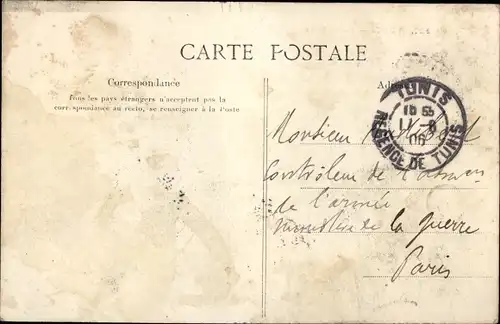 CARTE POSTALE
Correspondance
Tous les pays étrangers n'acceptent pas la
correspondance au recto, se renseigner à la Poste
TUNIS
18 55
11-8
06
REGENCE DE TUNIS
Monsieur
Contrôleur de
de l'armée
Ministère de la guerre
Paris